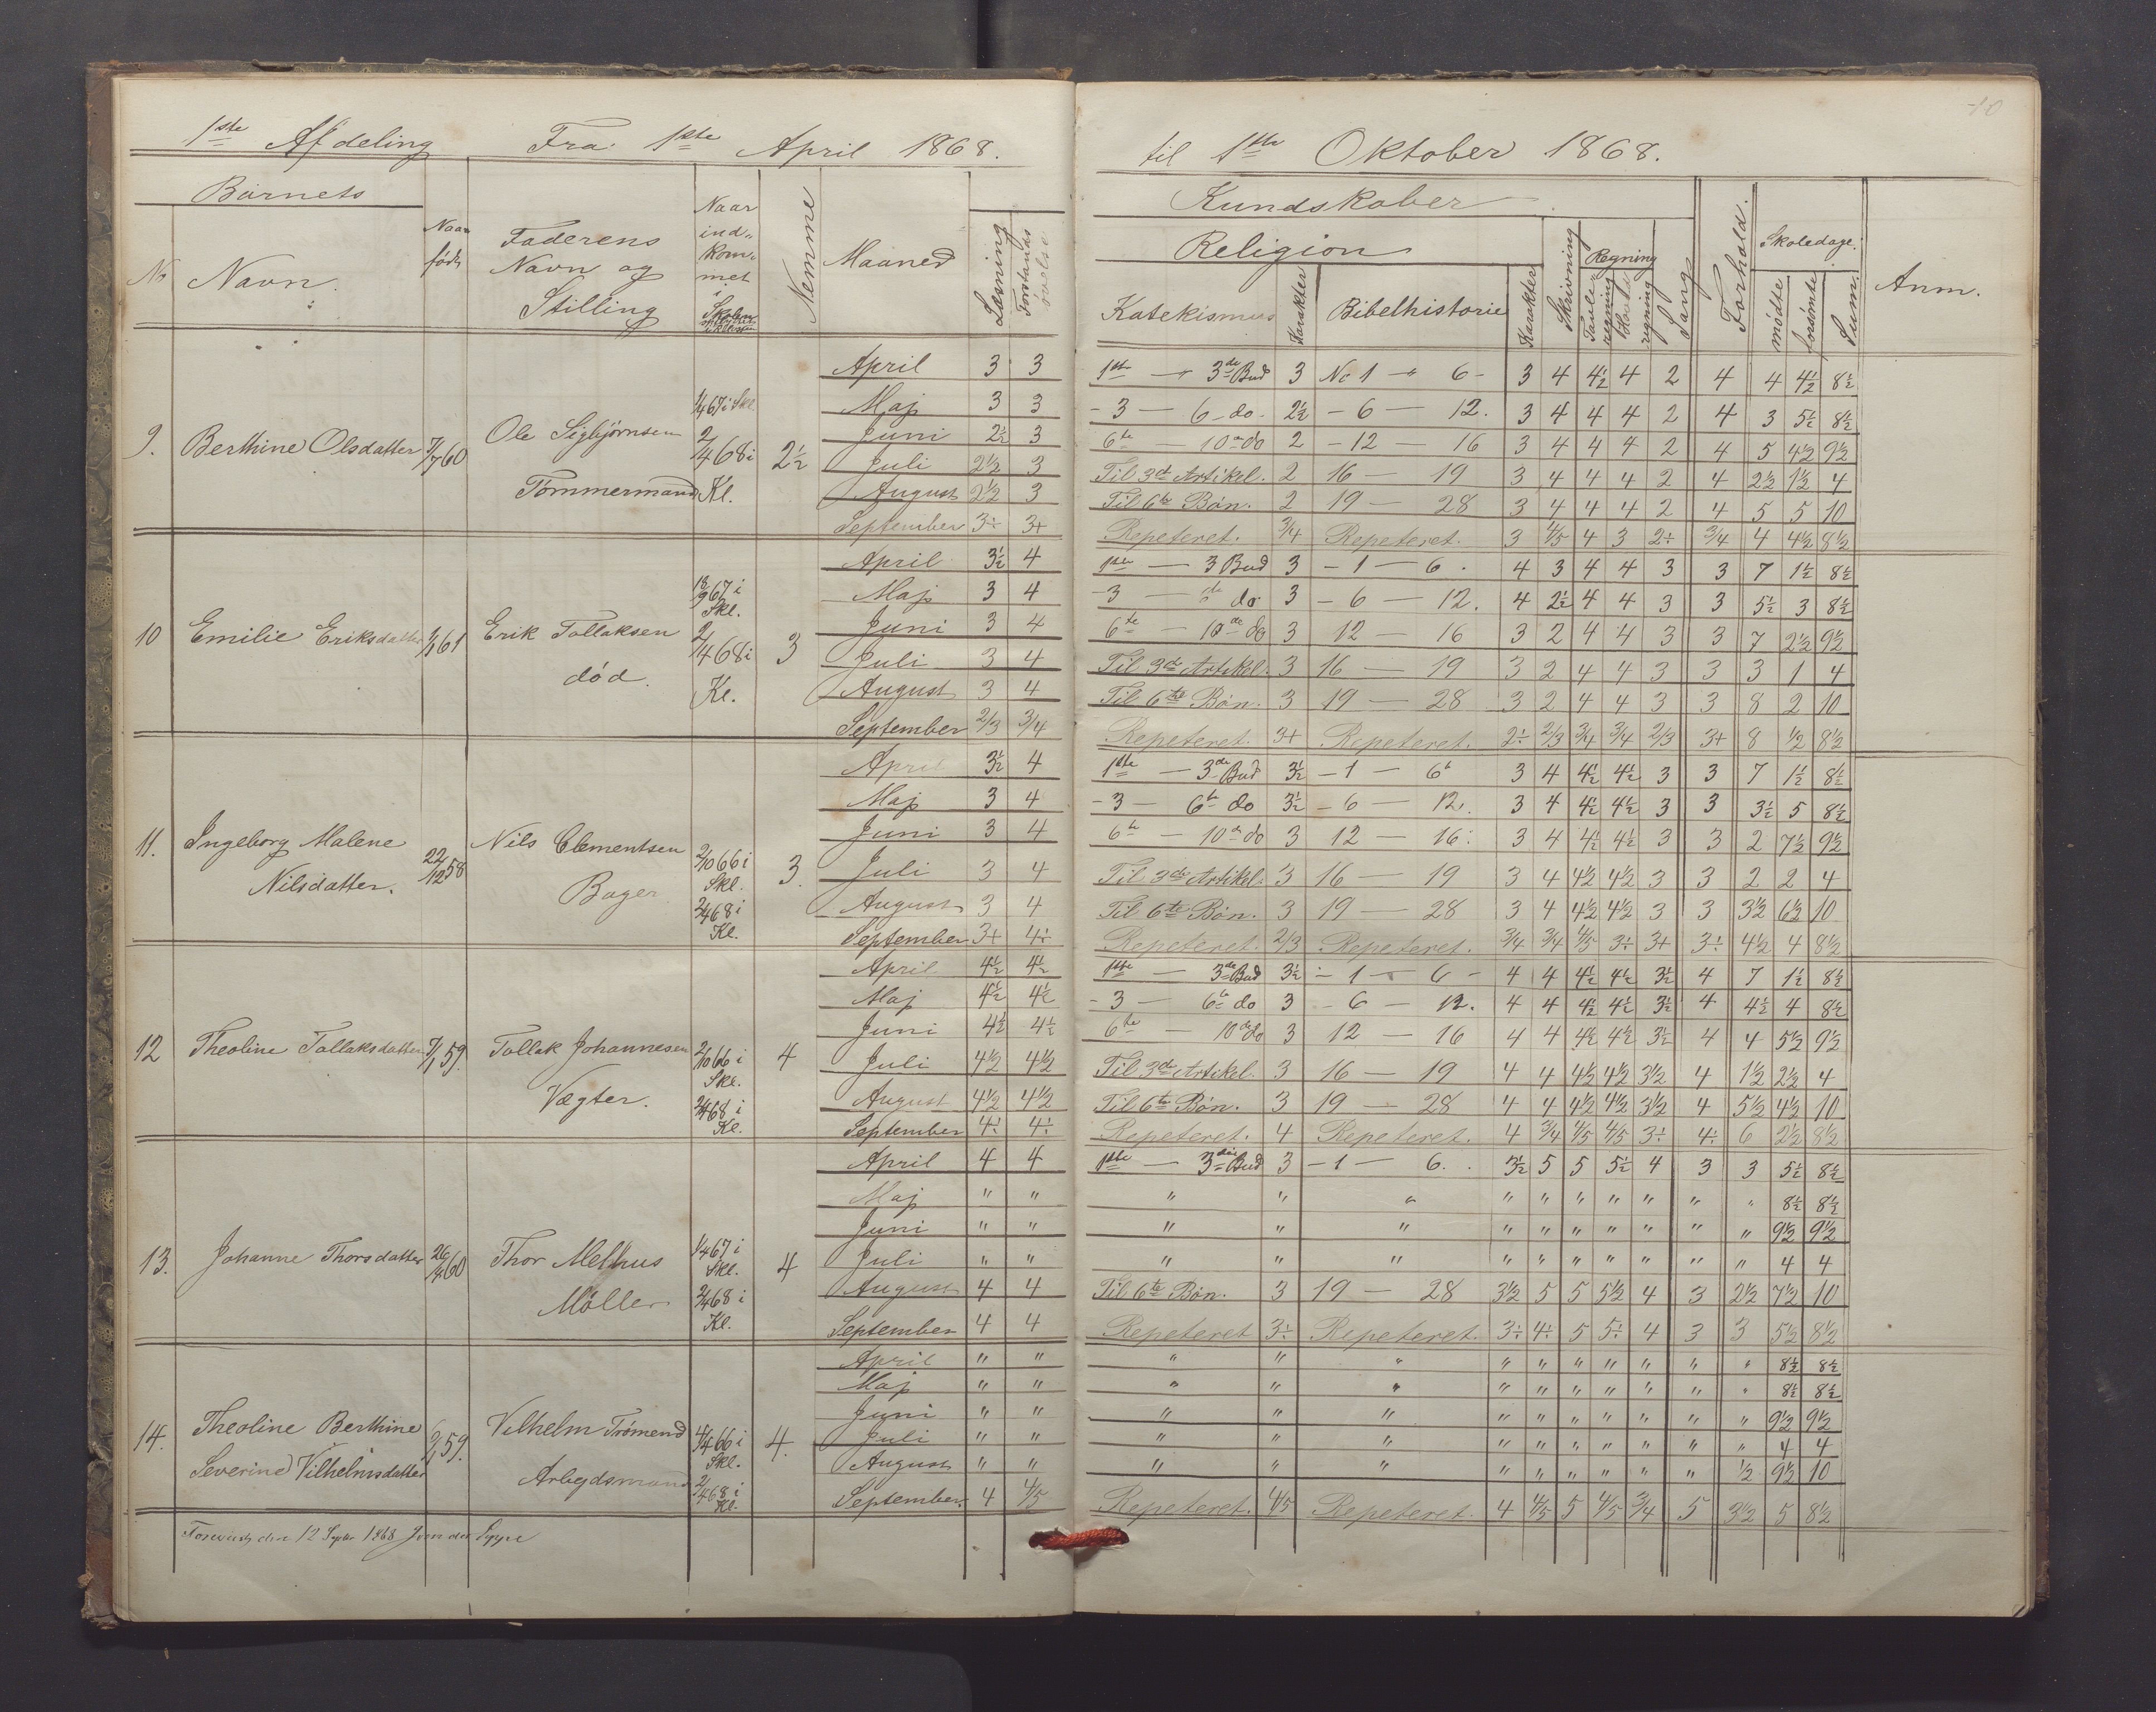 1ste Afdeling Fra 1ste April 1868.
Barnets
No Navn. Naar født Faderens Navn og Stilling Naar ind- kom- met i Skolen Nemme Maaned Læsning Forstands øvelse
9. Berthine Olsdatter 7/7 60 Ole Sigbjørnsen Tømmermand 1/4 67 i Skl. 2/4 68 i Kl. 2½
April 3 3
Maj 3 3
Juni 2½ 3
Juli 2½ 3
August 2½ 3
September 3÷ 3+
10 Emilie Eriksdatter 1/1 61 Erik Tollaksen død. 18/9 67 i Skl. 2/4 68 i Kl. 3
April 3½ 4
Maj 3 4
Juni 3 4
Juli 3 4
August 3 4
September 2/3 3/4
11. Ingeborg Malene Nilsdatter. 22/12 58 Nils Clementsen Bager 2/10 66 i Skl. 2/4 68 i Kl. 3.
April 3½ 4
Maj 3 4
Juni 3 4
Juli 3 4
August 3 4
September 3+ 4÷
12 Theoline Tollaksdatter 7/1 59. Tollak Johannesen Vægter. 2/10 66 i Skl. 2/4 68 i Kl. 4
April 4½ 4½
Maj 4½ 4½
Juni 4½ 4½
Juli 4½ 4½
August 4½ 4½
September 4÷ 4÷
13. Johanne Thorsdatter 60 Thor Melhus Møller 1/4 67 i Skl. 2/4 68 i Kl. 4
April 4 4
Maj " "
Juni " "
Juli " "
August 4 4
September 4 4
14. Theoline Berthine Severine Vilhelmsdatter 59. Vilhelm Trømend Arbejdsmand 66 i Skl. 2/4 68 i Kl. 4.
April " "
Maj " "
Juni " "
Juli " "
August " "
September 4 4/5
den 12 Septbr 1868
10
til 1ste Oktober 1868.
Kundskaber
Religion Skrivning Regning Sang Forhold. Skoledage. Anm.
Katekismus Karakter Bibelhistorie Karakter Tavle- regning Hoved regning mødte forsømte Sum
1ste — 3de Bud 3 No 1 — 6 - 3 4 4½ 4 2 4 4 4½ 8½
- 3 — 6 - do - 2½ - 6 — 12. 3 4 4 4 2 4 3 5½ 8½
6te — 10de do 2 - 12 — 16 3 4 4 4 2 4 5 4½ 9½
Til 3de Artikel. 2 16 — 19 3 4 4 4 2 4 2½ 1½ 4
Til 6te Bøn. 2 19 — 28 3 4 4 4 2 4 5 5 10
Repeteret. 3/4 Repeteret. 3 4/5 4 3 2÷ 3/4 4 4½ 8½
1ste — 3 Bud 3 - 1 — 6. 4 3 4 4 3 3 7 1½ 8½
- 3 — do 3 - 6 — 12. 4 2½ 4 4 3 3 5½ 3 8½
6te — 10de do 3 12 — 16 3 2 4 4 3 3 7 2½ 9½
Til 3de Artikel. 3 16 — 19 3 2 4 4 3 3 3 1 4
Til 6te Bøn. 3 19 — 28 3 2 4 4 3 3 8 2 10
Repeteret. 3+ Repeteret. 2÷ 2/3 3/4 3/4 2/3 3+ 8 ½ 8½
1ste — 3de Bud 3½ - 1 — 6 3 4 4½ 4½ 3 3 7 1½ 8½
- 3 — 6te do 3½ - 6 — 12. 3 4 4½ 4½ 3 3 3½ 5 8½
6te — 10de do 3 12 — 16. 3 4 4½ 4½ 3 3 2 7½ 9½
Til 3de Artikel. 3 16 — 19 3 4 4½ 4½ 3 3 2 2 4
Til 6te Bøn. 3 19 — 28 3 4 4½ 4½ 3 3 3½ 6½ 10
Repeteret. 2/3 Repeteret. 3/4 3/4 4/5 3÷ 3+ 3÷ 4½ 4 8½
1ste — 3de Bud 3½ - 1 — 6 - 4 4 4½ 4½ 3½ 4 7 1½ 8½
- 3 — 6te do 3 - 6 — 12. 4 4 4½ 4½ 3½ 4 4½ 4 8½
6te — 10de do 3 12 — 16 4 4 4½ 4½ 3½ 4 4 5½ 9½
Til 3de Artikel. 3 16 — 19 4 4 4½ 4½ 3½ 4 1½ 2½ 4
Til 6te Bøn. 3 19 — 28 4 4 4½ 4½ 3½ 4 5½ 4½ 10
Repeteret. 4 Repeteret. 4 3/4 4/5 4/5 3÷ 4÷ 6 2½ 8½
1ste — 3die Bud 3 - 1 — 6. 3½ 5 5 5½ 4 3 3 5½ 8½
" " " " " " " " " " 8½ 8½
" " " " " " " " " " 9½ 9½
" " " " " " " " " " 4 4
Til 6te Bøn. 3 19 — 28 3½ 5 5 5½ 4 3 2½ 7½ 10
Repeteret 3÷ Repeteret. 3÷ 4÷ 5 5÷ 4 3 3 5½ 8½
" " " " " " " " " " 8½ 8½
" " " " " " " " " " 8½ 8½
" " " " " " " " " " 9½ 9½
" " " " " " " " " " 4 4
" " " " " " " " " ½ 9½ 10
Repeteret. 4/5 Repeteret. 4 4/5 5 4/5 3/4 5 3½ 5 8½